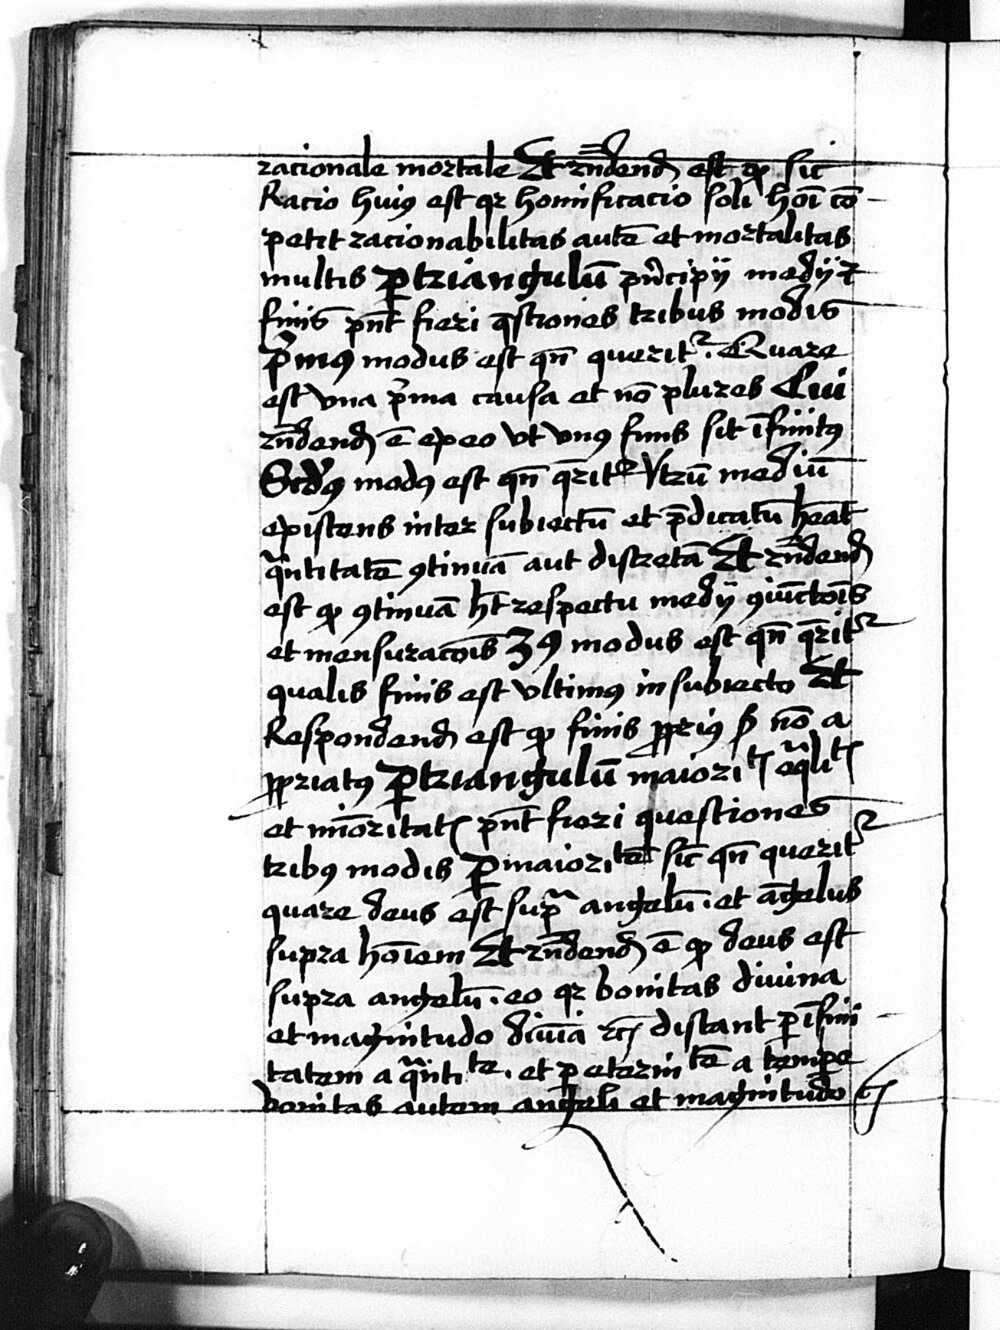 racionale mortale Et rñdend est ꝙ sic
Racio huiꝰ est qꝛ homificacio soli hoī cō
petit racionabilitas autē et mortalitas
multis ꝑ triangulū pⁱncipij medij ⁊
finis pn̄t fieri q̄stiones tribus modis
pⁱmꝰ modus est qn̄ queritᷣ. Quare
est vna pⁱma causa et nō plures Cui
rñdend ē ex eo vt vnꝰ finis sit īfinitꝰ
Scd'ꝰ modꝰ est qn̄ q̄ritᷣ Vtrū mediū
existens inter subiectū et p̄dicatū hēat
qᷓntitatē ꝯtinuā aut discretā Et rñdend
est ꝙ ꝯtinuā hꝫ respectu medij ꝯiūctōis
et mensuracōis 3ꝰ modus est qn̄ q̄ritᷣ
qualis finis est vltimꝰ in subiecto Et
Respondend est ꝙ finis ꝓpriꝰ sꝫ nō a
ꝓpriatꝰ ꝑ triangulū maioritꝭ eqᷓlitꝭ
et mīoritatꝭ pn̄t fieri questiones
tribꝰ modis ꝑ maioritē sic qn̄ queritᷣ
quare deus est supᷓ angelū. et āgelus
supra hoīem Et rñdend ē ꝙ deus est
supra angelū. eo qꝛ bonitas diuina
et magnitudo diuīa ⁊cꝭ distant ꝑ īfini
tatem a qᷓntitē. et ꝑ eternitē a tempe
bonitas autem angeli et magnitudo ⁊ꝭ